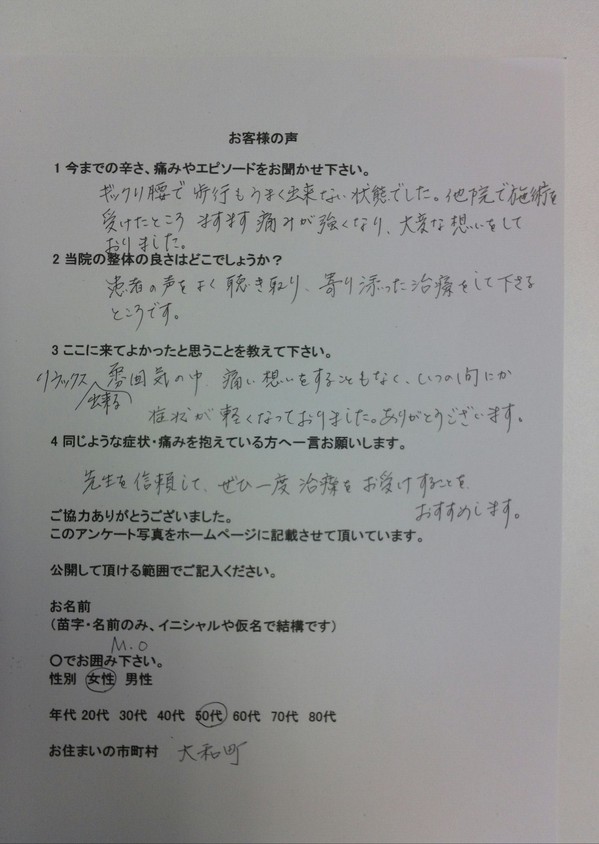 お客様の声
1 今までの辛さ、痛みやエピソードをお聞かせ下さい。
ギックリ腰で歩行もうまく出来ない状態でした。他院で施術を
受けたところ ますます痛みが強くなり、大変な想いをして
おりました。
2 当院の整体の良さはどこでしょうか?
患者の声をよく聴き取り、寄り添った治療をして下さる
ところです。
3 ここに来てよかったと思うことを教えて下さい。
リラックス出来る雰囲気の中、痛い想いをすることもなく、いつの間にか
症状が軽くなっておりました。ありがとうございます。
4 同じような症状・痛みを抱えている方へ一言お願いします。
先生を信頼して、ぜひ一度治療をお受けすることを
おすすめします。
ご協力ありがとうございました。
このアンケート写真をホームページに記載させて頂いています。
公開して頂ける範囲でご記入ください。
お名前
(苗字・名前のみ、イニシャルや仮名で結構です)
M.O
〇でお囲み下さい。
性別 女性 男性
年代 20代 30代 40代 50代 60代 70代 80代
お住まいの市町村 大和町